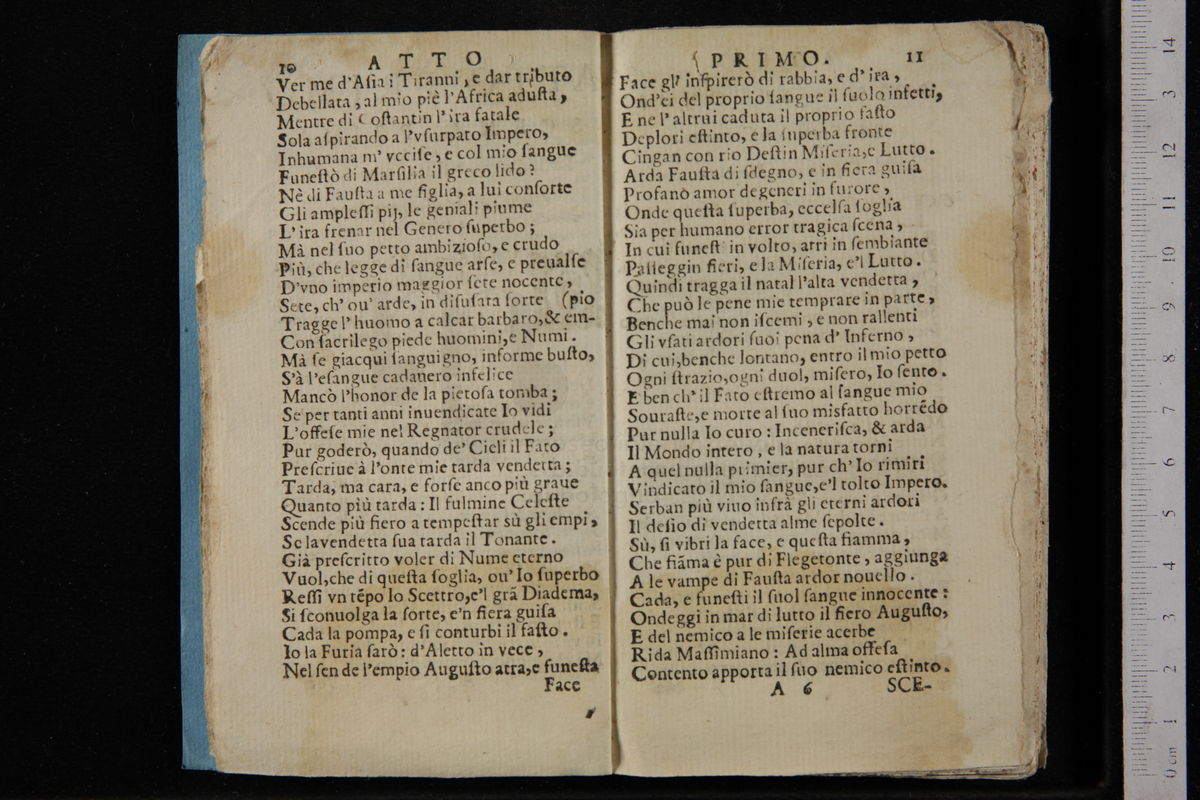 10 ATTO
Ver me d'Aſia i Tiranni, e dar tributo
Debellata, al mio piè l'Africa aduſta,
Mentre di Coſtantin l'ira fatale
Sola aſpirando a l'vſurpato Impero,
Inhumana m' vcciſe, e col mio ſangue
Funeſtò di Marſilia il greco lido?
Nè di Fauſta a me figlia, a lui conſorte
Gli ampleſſi pij, le geniali piume
L' ira frenar nel Genero ſuperbo;
Mà nel ſuo petto ambizioſo, e crudo
Più, che legge di ſangue arſe, e preualſe
D'vno imperio maggior ſete nocente,
Sete, ch' ou' arde, in diſuſata ſorte (pio
Tragge l' huomo a calcar barbaro, & em-
Con ſacrilego piede huomini, e Numi.
Mà ſe giacqui ſanguigno, informe buſto,
S'à l'eſangue cadauero infelice
Mancò l'honor de la pietoſa tomba;
Se per tanti anni inuendicate Io vidi
L'offeſe mie nel Regnator crudele;
Pur goderò, quando de' Cieli il Fato
Preſcriue à l'onte mie tarda vendetta;
Tarda, ma cara, e forſe anco più graue
Quanto più tarda: Il fulmine Celeſte
Scende più fiero a tempeſtar sù gli empi,
Se lavendetta ſua tarda il Tonante.
Già preſcritto voler di Nume eterno
Vuol, che di queſta ſoglia, ou' Io ſuperbo
Reſſi vn tẽpo lo Scettro, e'l grã Diadema,
Si ſconuolga la ſorte, e'n fiera guiſa
Cada la pompa, e ſi conturbi il faſto.
Io la Furia ſarò: d'Aletto in vece,
Nel ſen de l'empio Auguſto atra, e funeſta
Face
PRIMO. 11
Face gl' inſpirerò di rabbia, e d' ira,
Ond'ei del proprio ſangue il ſuolo infetti,
E ne l' altrui caduta il proprio faſto
Deplori eſtinto, e la ſuperba fronte
Cingan con rio Deſtin Miſeria, e Lutto.
Arda Fauſta di ſdegno, e in fiera guiſa
Profano amor degeneri in furore,
Onde queſta ſuperba, eccelſa ſoglia
Sia per humano error tragica ſcena,
In cui funeſt in volto, atri in ſembiante
Paſſeggin fieri, e la Miſeria, e'l Lutto.
Quindi tragga il natal l'alta vendetta,
Che può le pene mie temprare in parte,
Benche mai non iſcemi, e non rallenti
Gli vſati ardori ſuoi pena d' Inferno,
Di cui, benche lontano, entro il mio petto
Ogni ſtrazio, ogni duol, miſero, Io ſento.
E ben ch' il Fato eſtremo al ſangue mio
Souraſte, e morte al ſuo misfatto horrẽdo
Pur nulla Io curo: Inceneriſca, & arda
Il Mondo intero, e la natura torni
A quel nulla primier, pur ch' Io rimiri
Vindicato il mio ſangue, e'l tolto Impero.
Serban più viuo infrà gli eterni ardori
Il deſio di vendetta alme ſepolte.
Sù, ſi vibri la face, e queſta fiamma,
Che fiãma è pur di Flegetonte, aggiunga
A le vampe di Fauſta ardor nouello.
Cada, e funeſti il ſuol ſangue innocente:
Ondeggi in mar di lutto il fiero Auguſto,
E del nemico a le miſerie acerbe
Rida Maſſimiano: Ad alma offeſa
Contento apporta il ſuo nemico eſtinto.
A 6 SCE-
0 cm 1 2 3 4 5 6 7 8 9 10 11 12 13 14